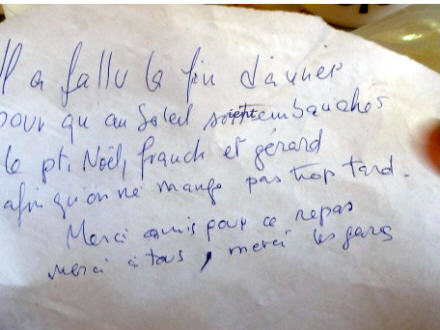 Il a fallu la fin d'avril
pour qu'au Soleil soient embauchés
le pt. Noël, franck et gérard
afin qu'on ne mange pas trop tard.
Merci amis pour ce repas
merci à tous, merci les gars